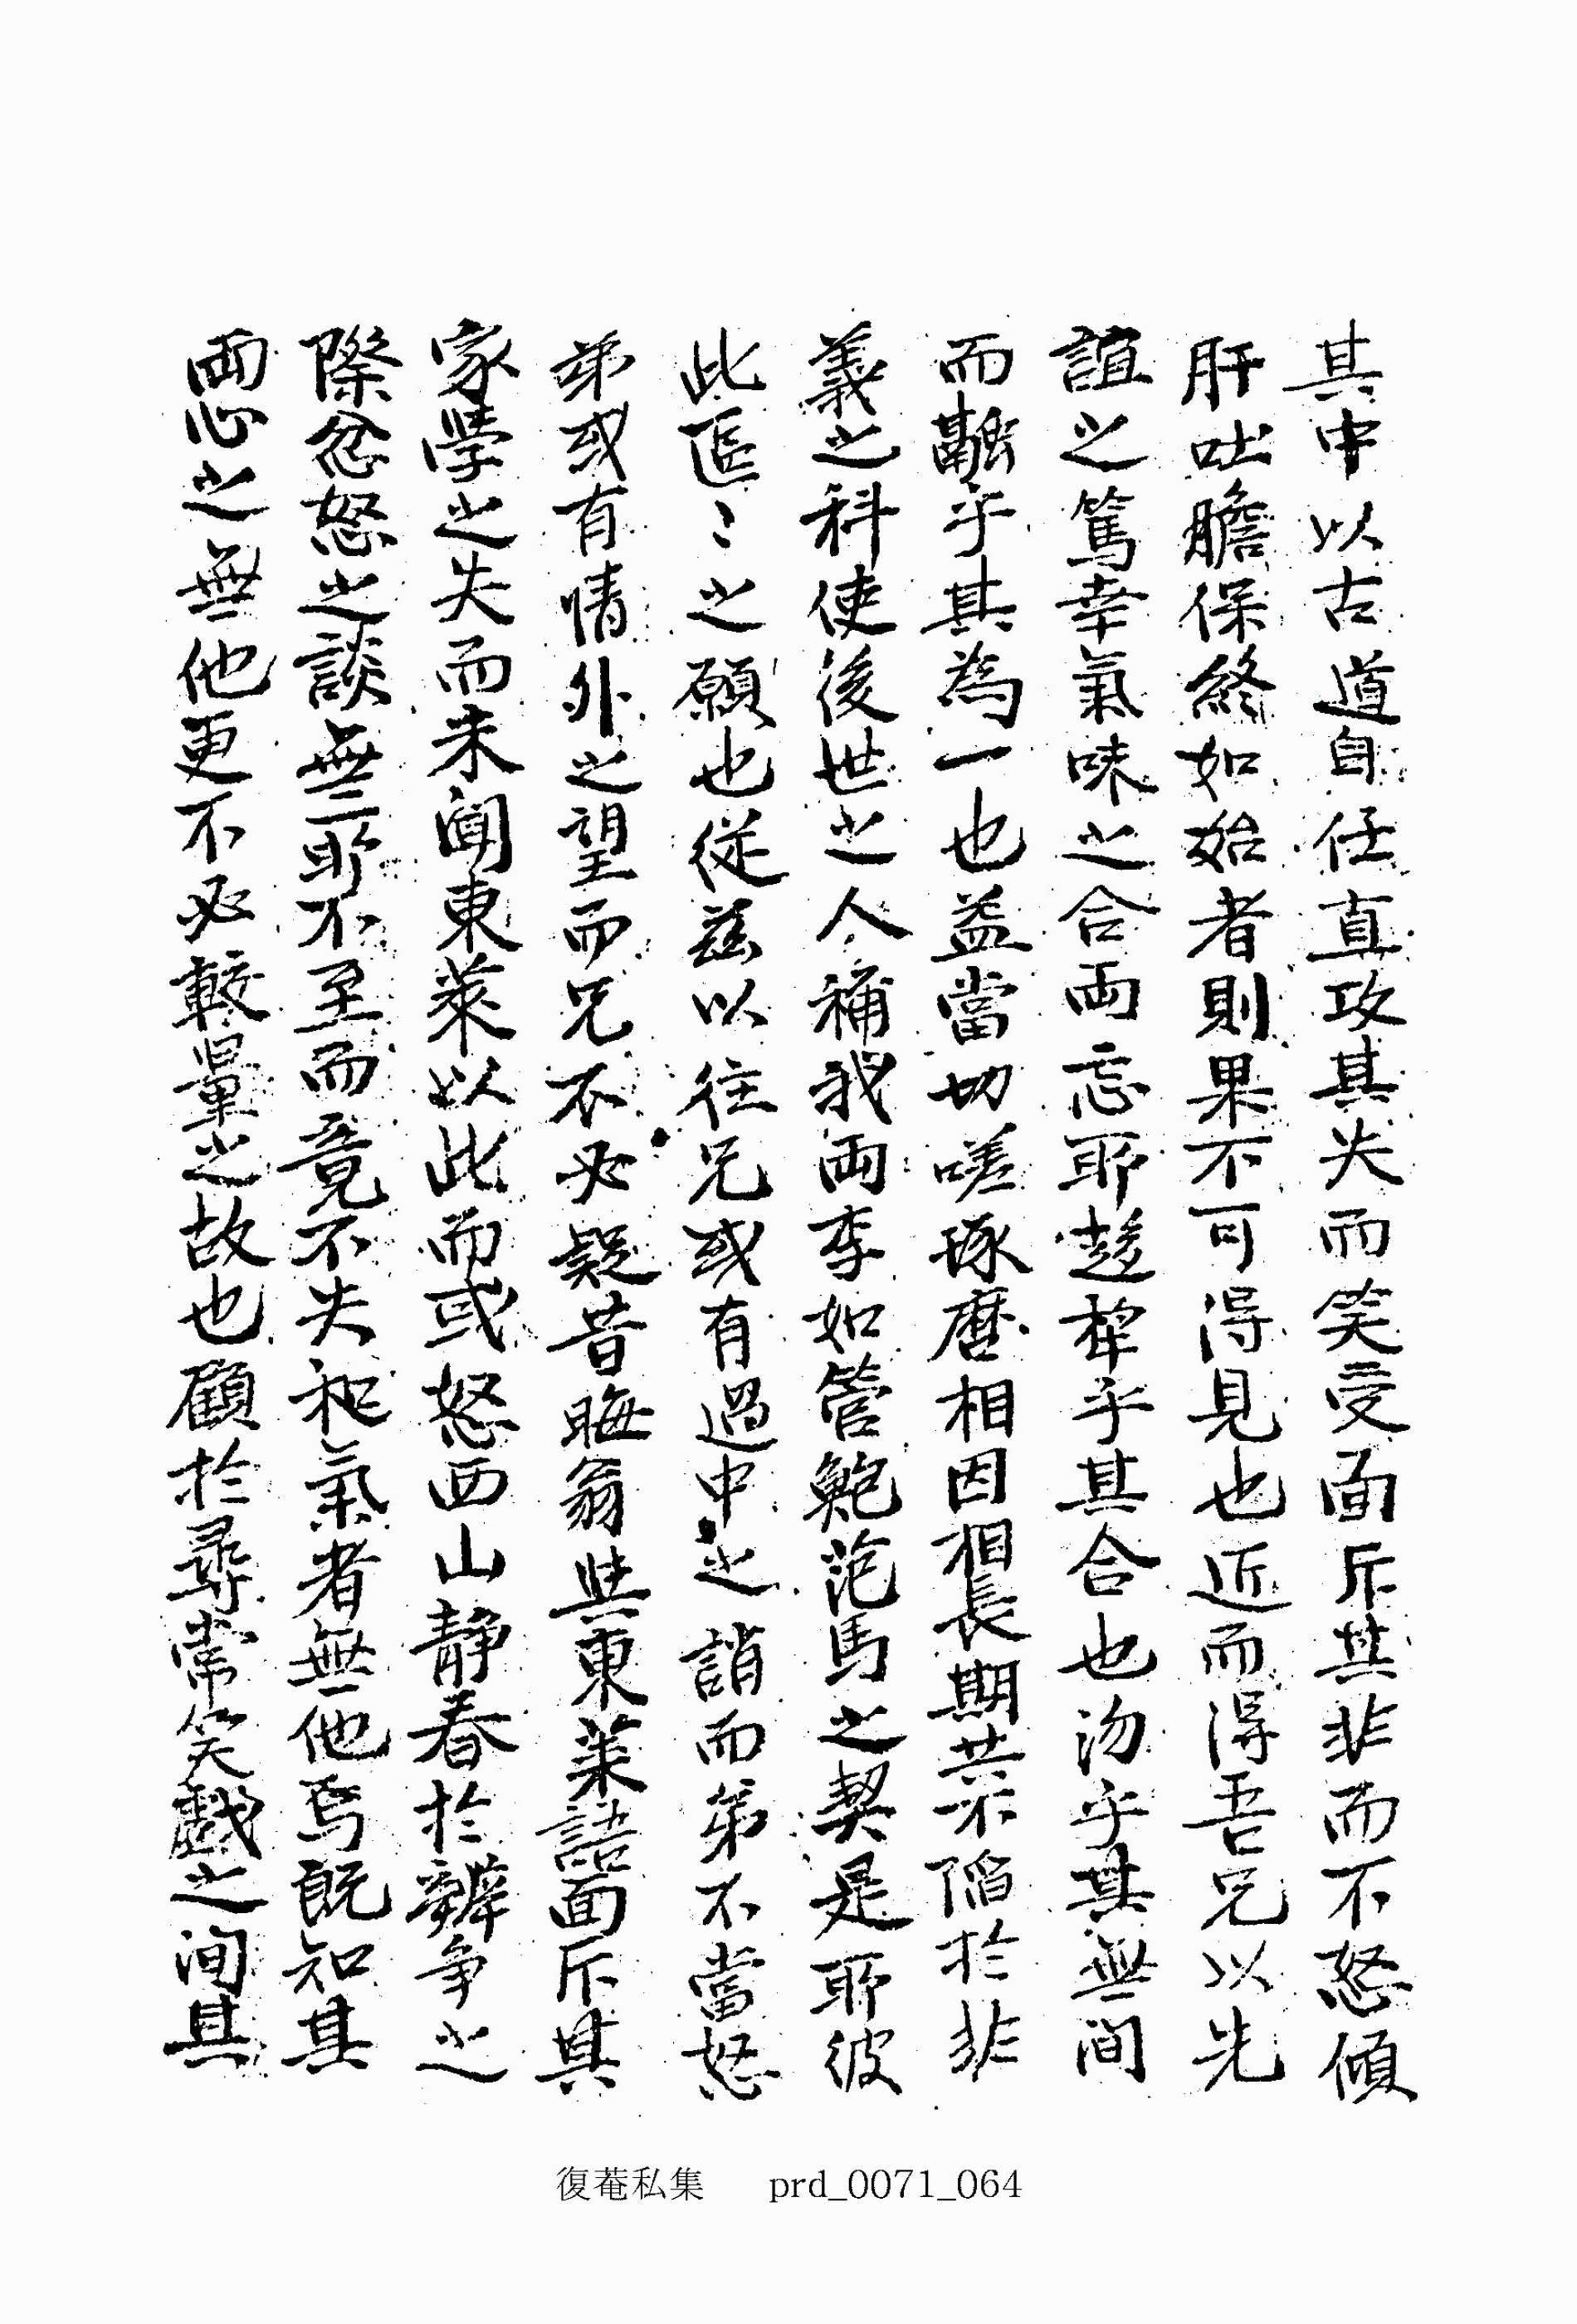 其中以古道自任直攻其失而笑受面斥其非而不怒傾
肝吐膽保終如始者則果不可得見也近而得吾兄以先
誼之篤幸氣味之合両忘耶趍犂乎其合也沕乎其無間
而黼乎其為一也益當切嗟琢磨相因相長期共不陷於非
義之科使後世之人補我両李如管鮑范馬之契是耶彼
此區〻之願也從茲以往兄或有過中之誚而弟不當怒
弟或有情外之望而兄不必疑昔晦翁與東萊語面斥其
家學之失而未聞東萊以此而或怒西山静春於辨争之
際忿怒之談無耶不至而竟不失和氣者無他焉既知其
両心之無他更不必較量之故也顧於尋常笑戱之间其
復菴私集 prd_0071_064